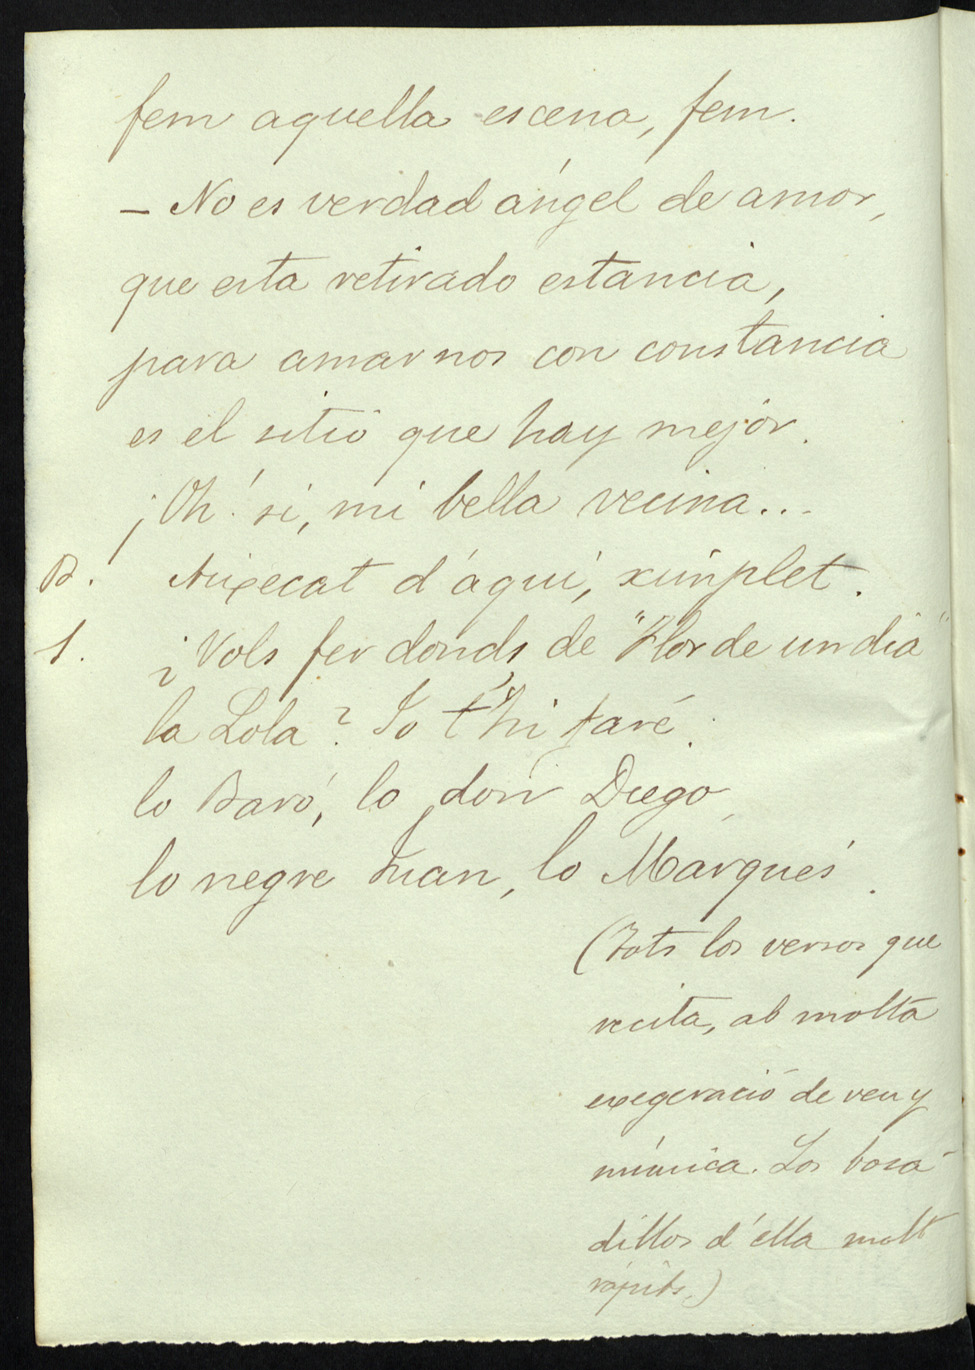 fem aquella escena, fem.
– No es verdad ángel de amor,
que esta retirado estancia,
para amarnos con constancia
es el sitio que hay mejor.
¡Oh! si, mi bella vecina...
B. Aixecat d'aquí, ximplet.
S. ¿Vols fer donds de "Flor de un dia"
la Lola? Jo t'hi faré.
lo Baró, lo don Diego,
lo negre Juan, lo Marqués.
(Tots los versos que
recita, ab molta
exegeració de veu y
mímica. Los boca-
dillos d'ella molt
rápits.)